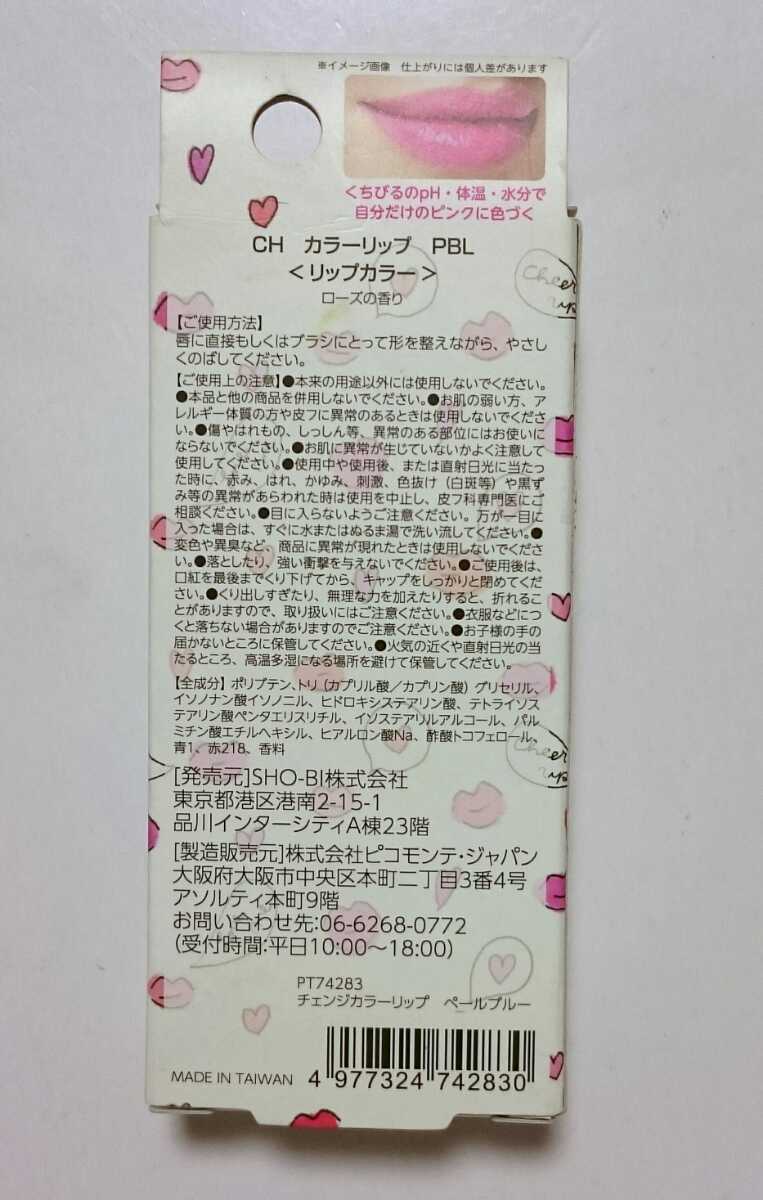 ※イメージ画像　仕上がりには個人差があります
くちびるのpH・体温・水分で
自分だけのピンクに色づく
CH　カラーリップ　PBL
＜リップカラー＞
ローズの香り
Cheer
up
【ご使用方法】
唇に直接もしくはブラシにとって形を整えながら、やさし
くのばしてください。
【ご使用上の注意】●本来の用途以外には使用しないでください。
●本品と他の商品を併用しないでください。●お肌の弱い方、ア
レルギー体質の方や皮フに異常のあるときは使用しないでくださ
い。●傷やはれもの、しっしん等、異常のある部位にはお使いに
ならないでください。●お肌に異常が生じていないかよく注意して
使用してください。●使用中や使用後、または直射日光に当たっ
た時に、赤み、はれ、かゆみ、刺激、色抜け（白斑等）や黒ず
み等の異常があらわれた時は使用を中止し、皮フ科専門医にご
相談ください。●目に入らないようご注意ください。万が一目に
入った場合は、すぐに水またはぬるま湯で洗い流してください。●
変色や異臭など、商品に異常が現れたときは使用しないでくださ
い。●落としたり、強い衝撃を与えないでください。●ご使用後は、
口紅を最後までくり下げてから、キャップをしっかりと閉めてくだ
さい。●くり出しすぎたり、無理な力を加えたりすると、折れるこ
とがありますので、取り扱いにはご注意ください。●衣服などにつ
くと落ちない場合がありますのでご注意ください。●お子様の手の
届かないところに保管してください。●火気の近くや直射日光の当
たるところ、高温多湿になる場所を避けて保管してください。
【全成分】ポリブテン、トリ（カプリル酸／カプリン酸）グリセリル、
イソノナン酸イソノニル、ヒドロキシステアリン酸、テトライソス
テアリン酸ペンタエリスリチル、イソステアリルアルコール、パル
ミチン酸エチルヘキシル、ヒアルロン酸Na、酢酸トコフェロール、
青1、赤218、香料
Cheer
up
[発売元]SHO-BI株式会社
東京都港区港南2-15-1
品川インターシティA棟23階
[製造販売元]株式会社ピコモンテ・ジャパン
大阪府大阪市中央区本町二丁目3番4号
アソルティ本町9階
お問い合わせ先:06-6268-0772
（受付時間:平日10:00～18:00）
PT74283
チェンジカラーリップ　ペールブルー
MADE IN TAIWAN
4 977324 742830